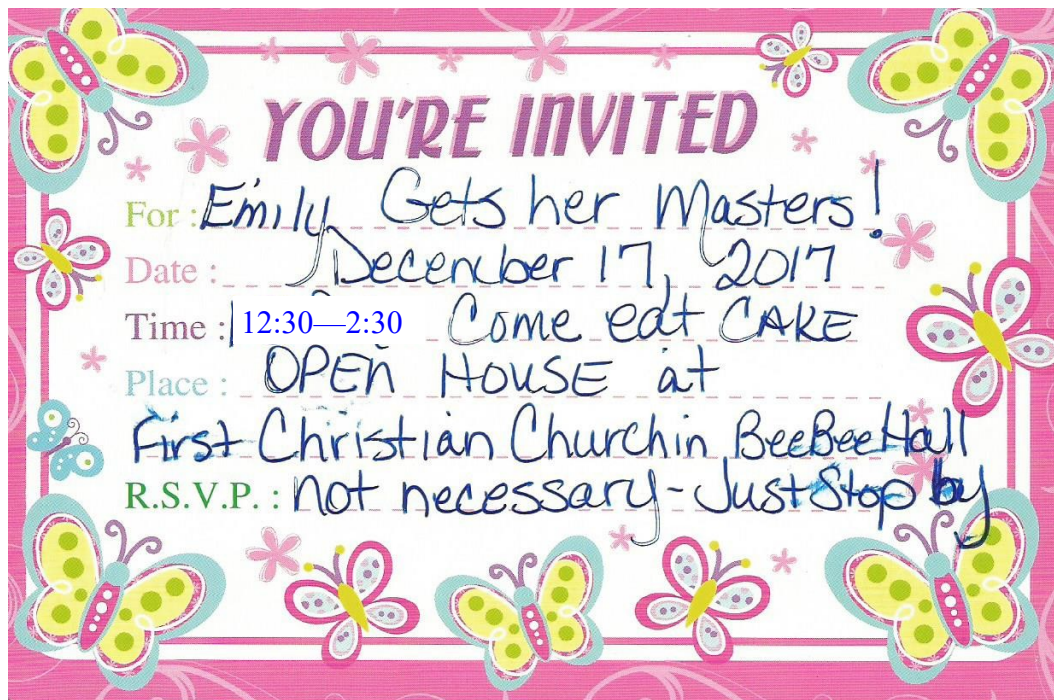 YOU'RE INVITED
For : Emily Gets her Masters!
Date : December 17, 2017
Time : 12:30—2:30 Come eat CAKE
Place : OPEN HOUSE at
First Christian Church in BeeBee Hall
R.S.V.P. : not necessary - Just Stop by